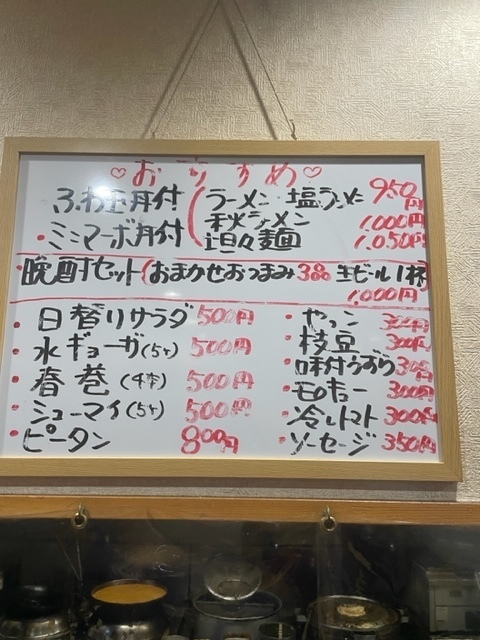 ♡おすすめ♡
ふわ玉丼付 ラーメン・塩ラーメン 950円
秋ラーメン 1,000円
・ミニマーボ丼付 坦々麺 1,050円
・晩酌セット(おまかせおつまみ3品 生ビール1杯
1,000円
・日替りサラダ 500円
・水ギョーザ(5ヶ) 500円
・春巻(4本) 500円
・シューマイ(5ヶ) 500円
・ピータン 800円
・やっこ 300円
・枝豆 300円
・味付うずら 300円
・モロキュー 300円
・冷しトマト 300円
・ソーセージ 350円